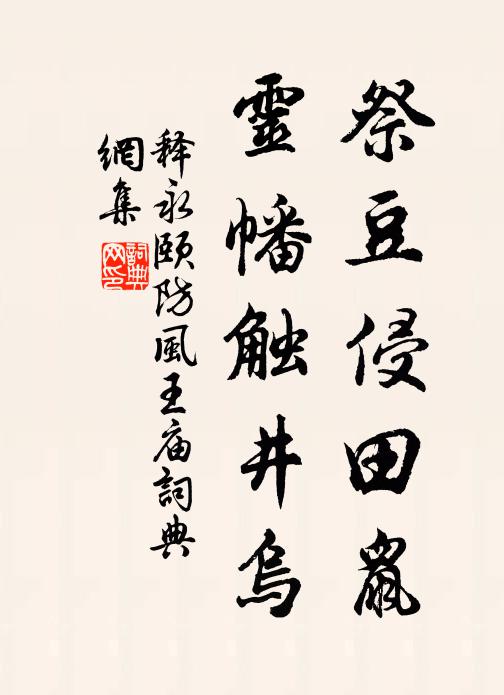 祭豆侵田鼠
靈幡触井烏
释永颐防風王庙詞典
網集
詞典網印